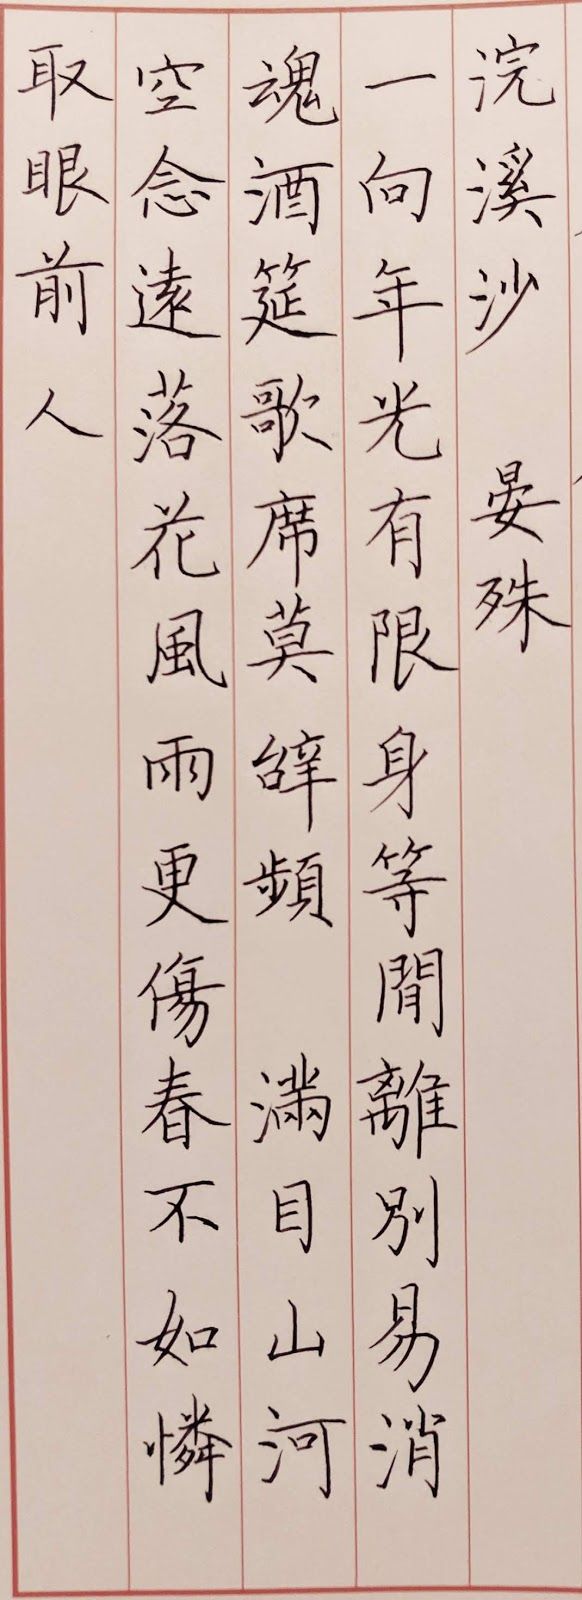 浣溪沙 晏殊
一向年光有限身等閒離別易消
魂酒筵歌席莫辭頻 滿目山河
空念遠落花風雨更傷春不如憐
取眼前人